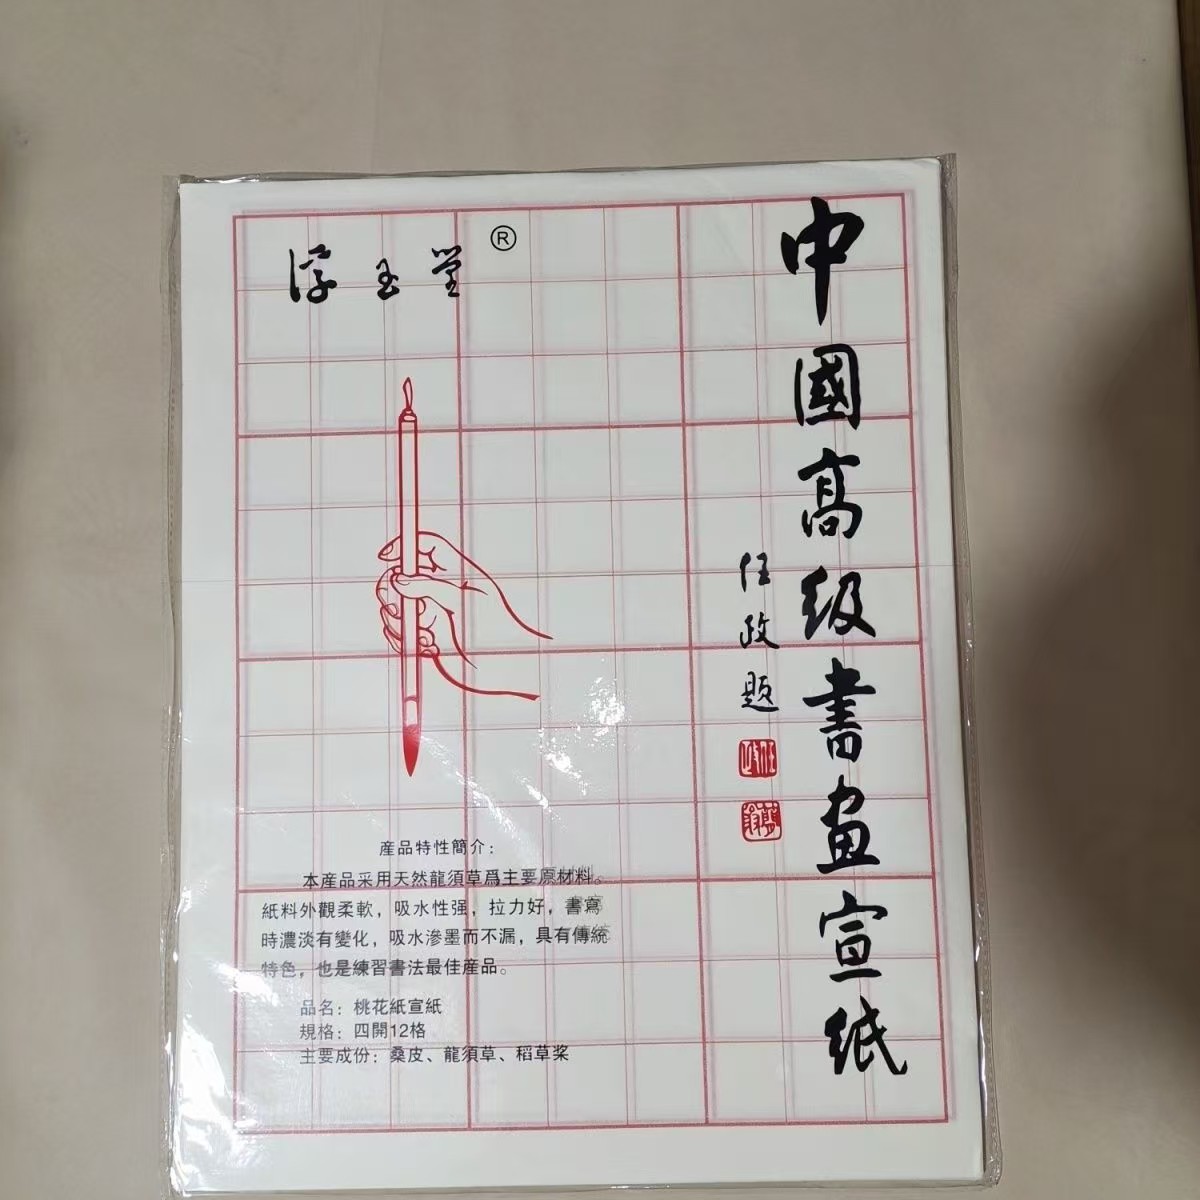 中國高级書画宣纸
任政题
淳玉堂®
産品特性簡介：
本産品采用天然龍須草爲主要原材料。
紙料外觀柔軟，吸水性强，拉力好，書寫
時濃淡有變化，吸水滲墨而不漏，具有傳統
特色，也是練習書法最佳産品。
品名：桃花紙宣紙
規格：四開12格
主要成份：桑皮、龍須草、稻草桨